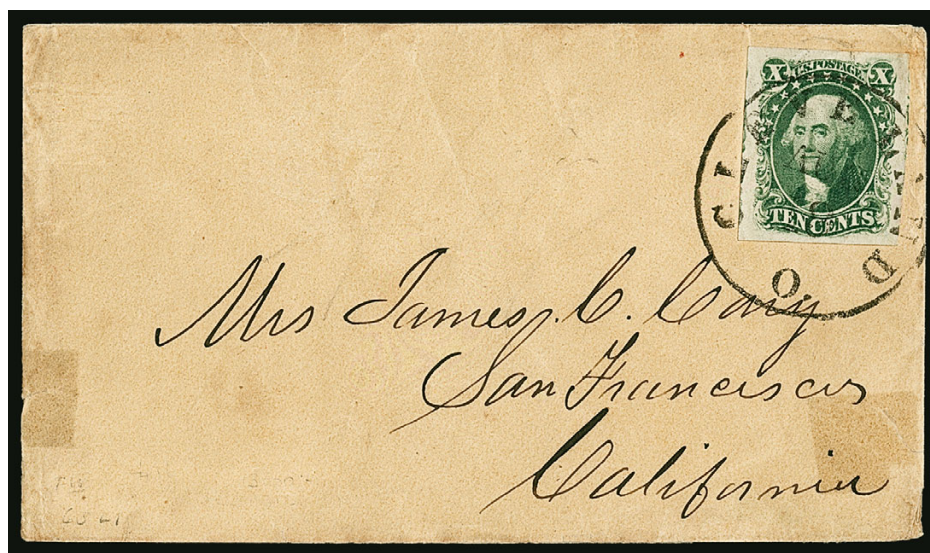 X U.S. POSTAGE X
TEN CENTS
CLEVELAND O
Mrs James C. Cary
San Francisco
California